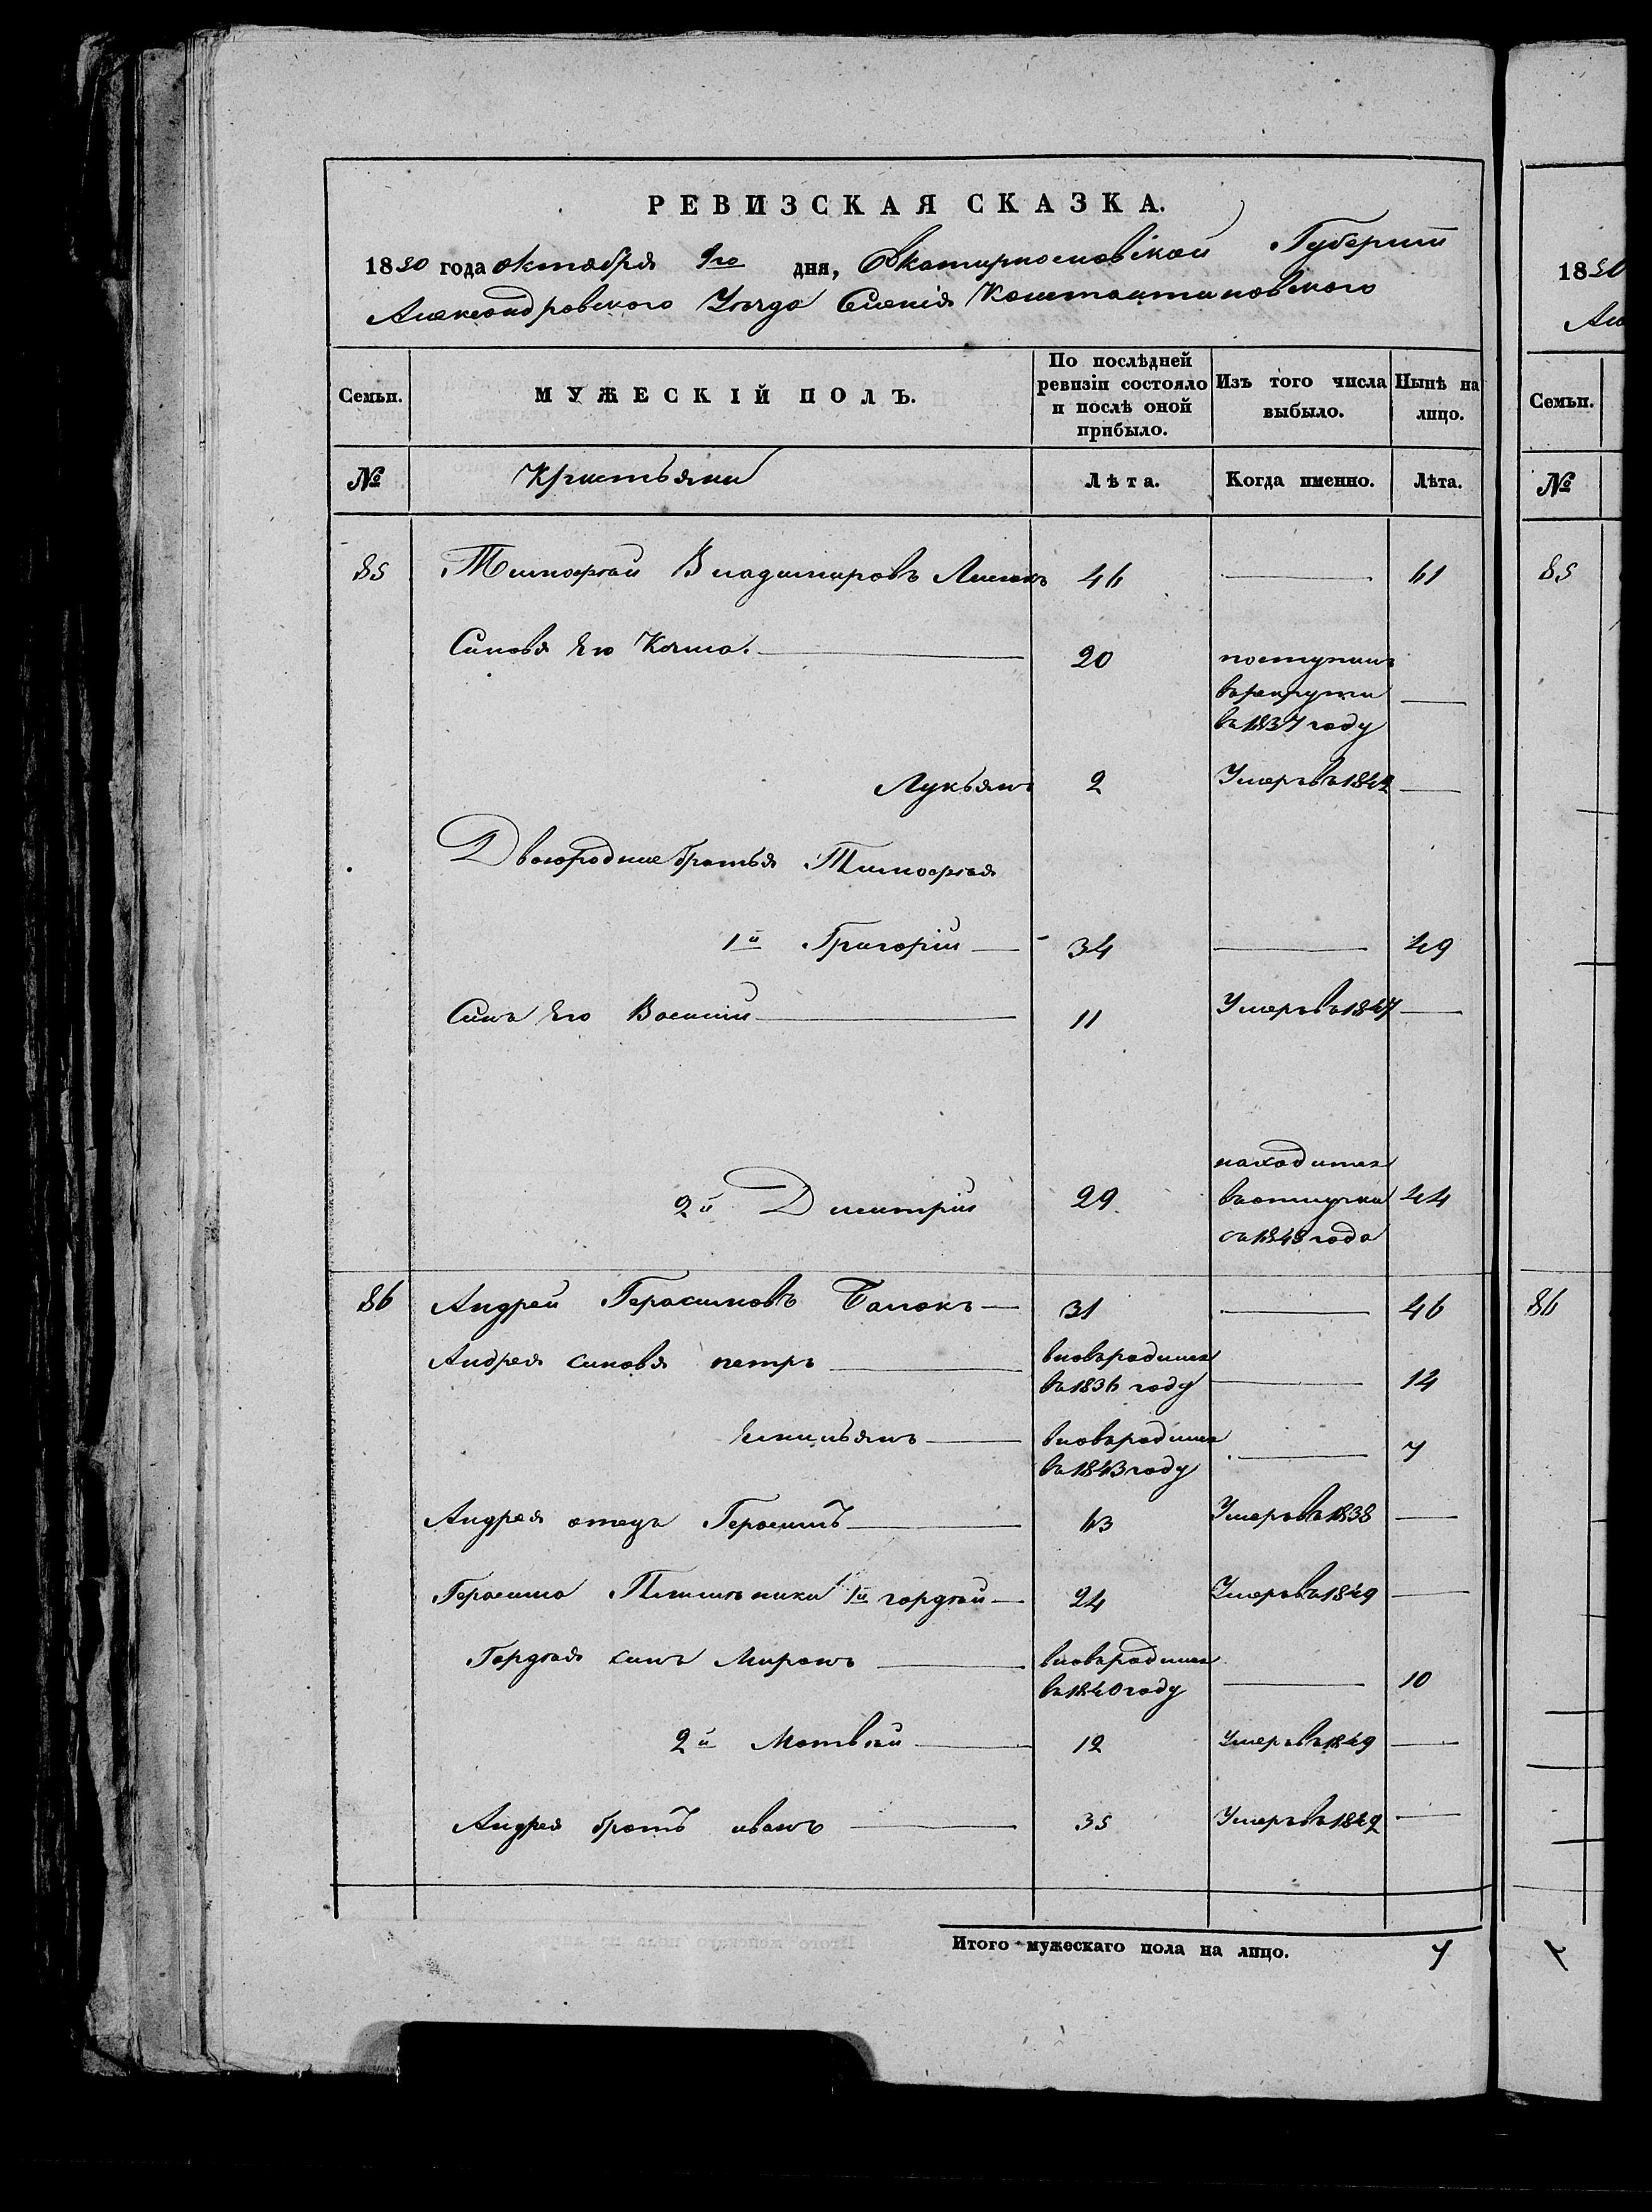 РЕВИЗСКАЯ СКАЗКА.
1850 года октября 9го дня, Екатеринославской Губернии
Александровского Уезда Селенія Константиновского
Семьи. МУЖЕСКІЙ ПОЛЪ. По послѣдней ревизіи состояло и послѣ оной прибыло. Изъ того числа выбыло. Нынѣ на лицо.
№ Крестьяни Лѣта. Когда именно. Лѣта.
85 Тимофей Владимировъ 46 61
Синовя Его Козма. 20 поступилъ
в рекруты
въ 1837 году
Лукьянъ 2 Умеръ въ 1842
Двоюродние братья Тимофея
1й Григорій 34 49
Синъ Его Василій 11 Умеръ въ 1847
2й Дмитрій 29 находится
въ отлучки 44
съ 1848 года
86 Андрей Герасимовъ 31 46
Андрея синовя петръ вновьродился
въ 1836 году 14
Емильянъ вновьродился
въ 1843 году 7
Андрея отецъ Герасимъ 63 Умеръ въ 1838
Герасима Племѣники 1й гордѣй 24 Умеръ въ 1849
Гордѣя синъ Миронъ вновьродился
въ 1840 году 10
2й Матвѣй 12 Умеръ въ 1849
Андрея братъ иванъ 35 Умеръ въ 1842
Итого мужескаго пола на лицо. 7
1850
Але
Семьи.
№
85
86